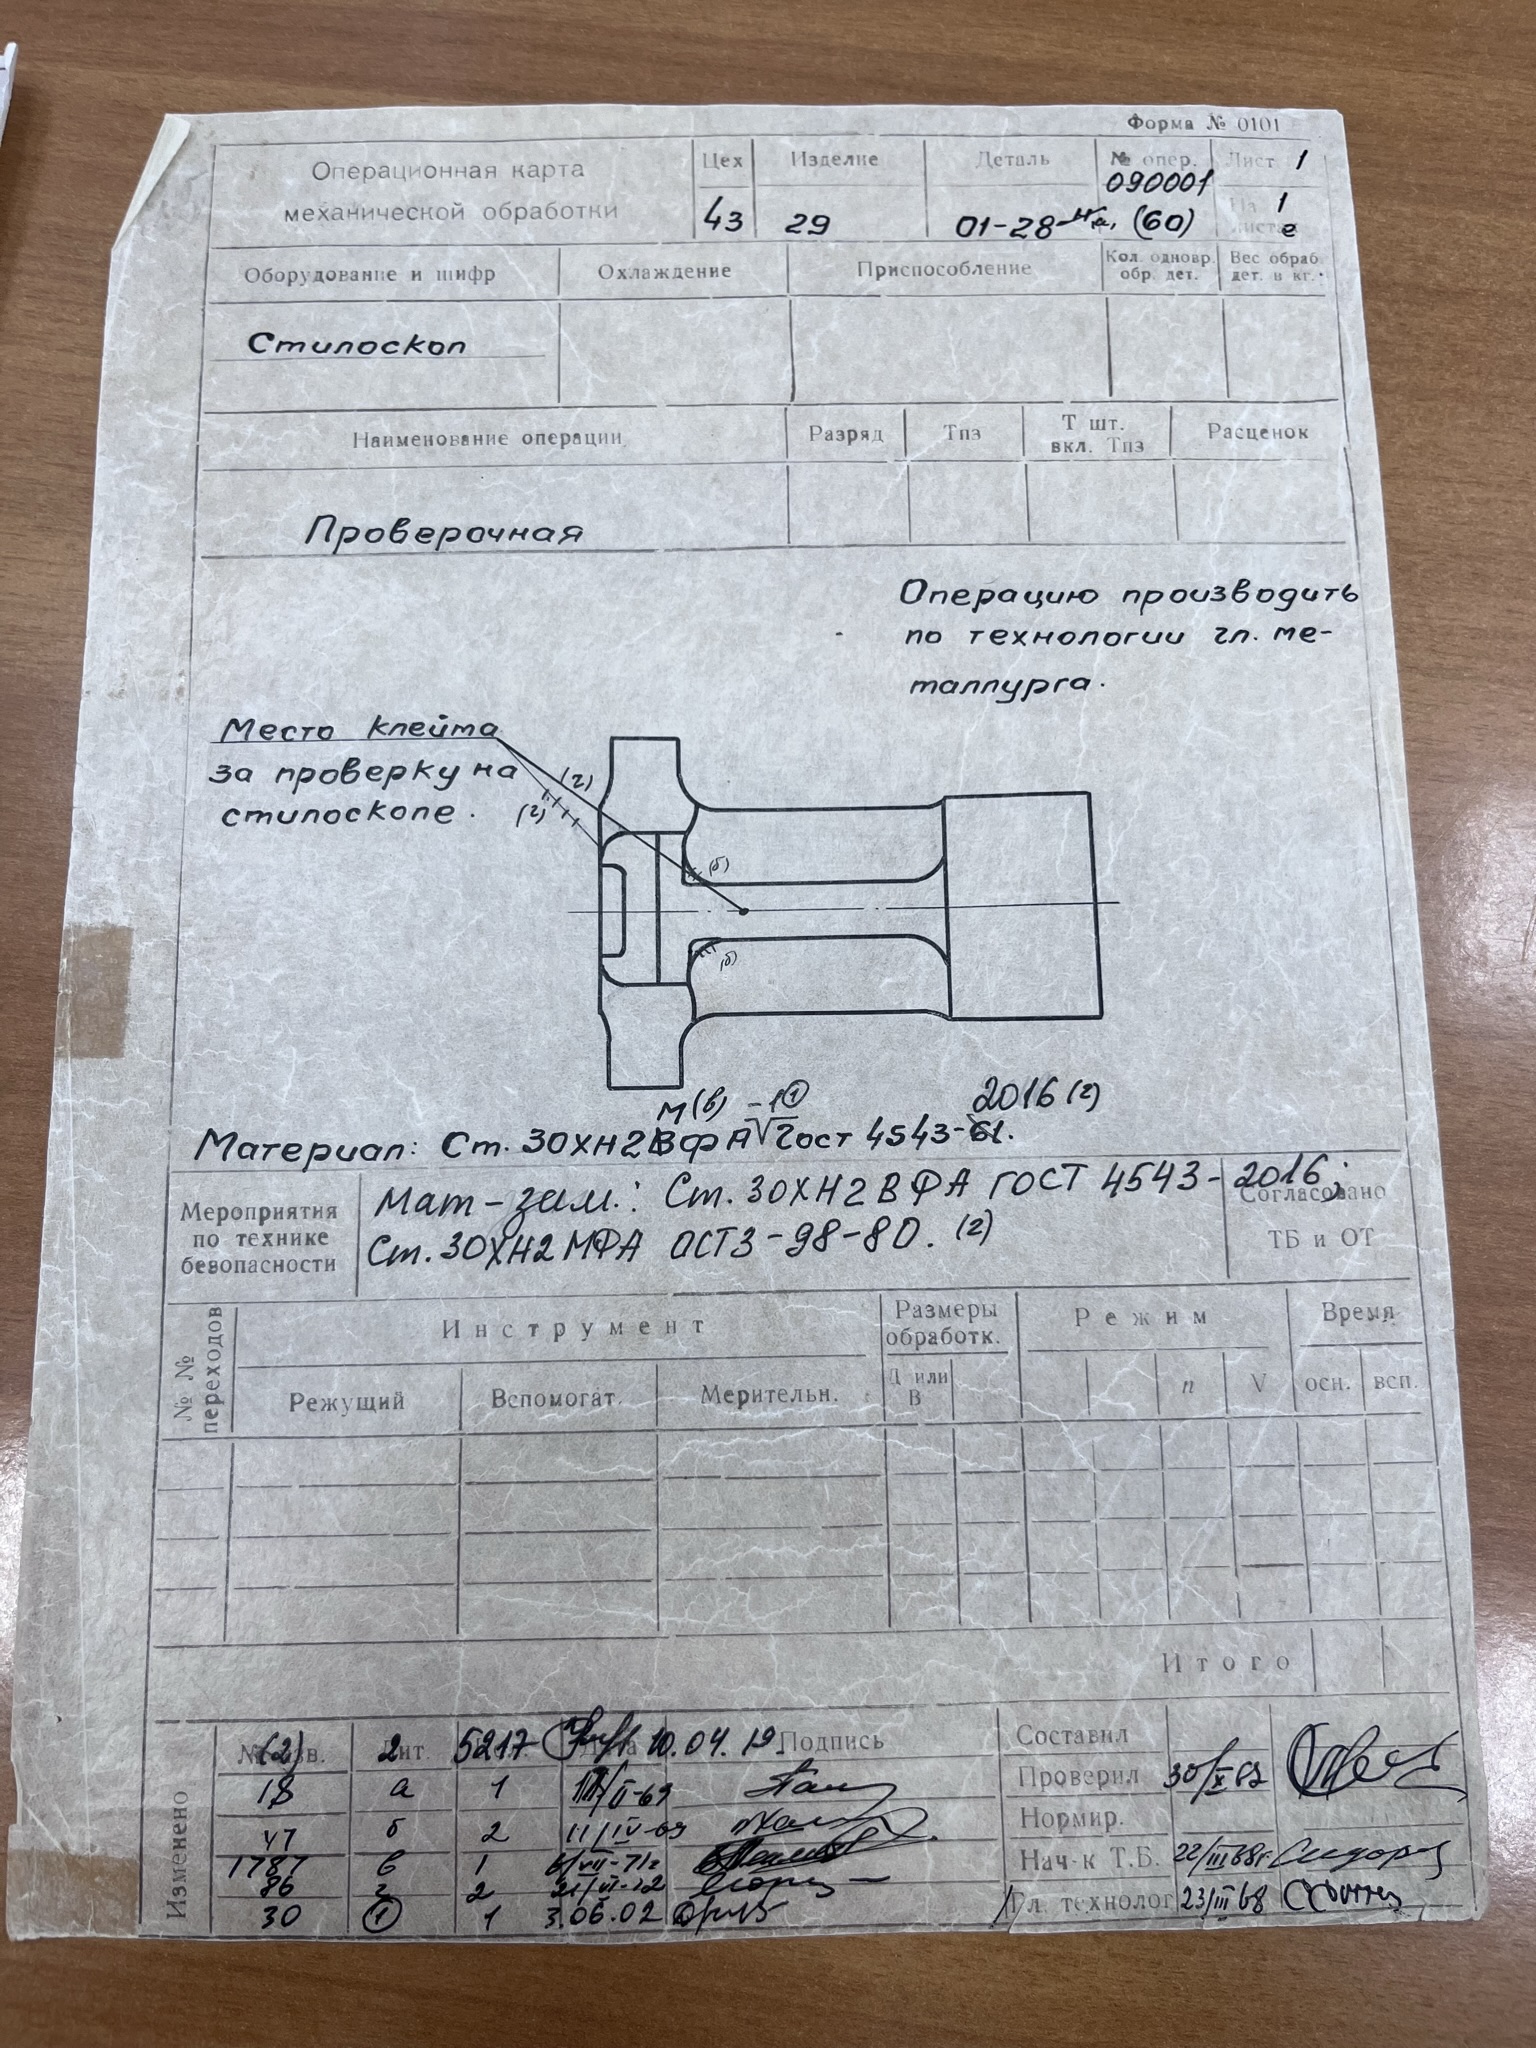 Форма № 0101
Операционная карта механической обработки
Цех 43
Изделие 29
Деталь 01-28 (60)
№ опер. 090001
Лист 1
На 1 листе
Оборудование и шифр
Охлаждение
Приспособление
Кол. одновр. обр. дет.
Вес обраб. дет. в кг.
Стилоскоп
Наименование операции
Разряд
Тпз
Т шт. вкл. Тпз
Расценок
Проверочная
Операцию производить
по технологии гл. ме-
таллурга.
Место клейма
за проверку на
стилоскопе.
(г)
(г)
(б)
(б)
М(в) -1 ①
2016 (2)
Материал: Ст. 30ХН2ВФА Гост 4543-61.
Мероприятия по технике безопасности
Мат-зам.: Ст. 30ХН2ВФА ГОСТ 4543-2016;
Ст. 30ХН2МФА ОСТ3-98-80. (2)
Согласовано
ТБ и ОТ
№ № переходов
Инструмент
Размеры обработк.
Режим
Время
Режущий
Вспомогат.
Мерительн.
Д или В
n
V
осн.
всп.
Итого
Изменено
(2) 2 5217 10.04.19. Подпись
18 а 1 II-69
47 б 2 11/IV-69
1787 в 1
86 г 2
30 ① 1 3.06.02
Составил
Проверил 30/X
Нормир.
Нач-к Т.Б. 22/III 68г.
Гл. технолог 23/III 68